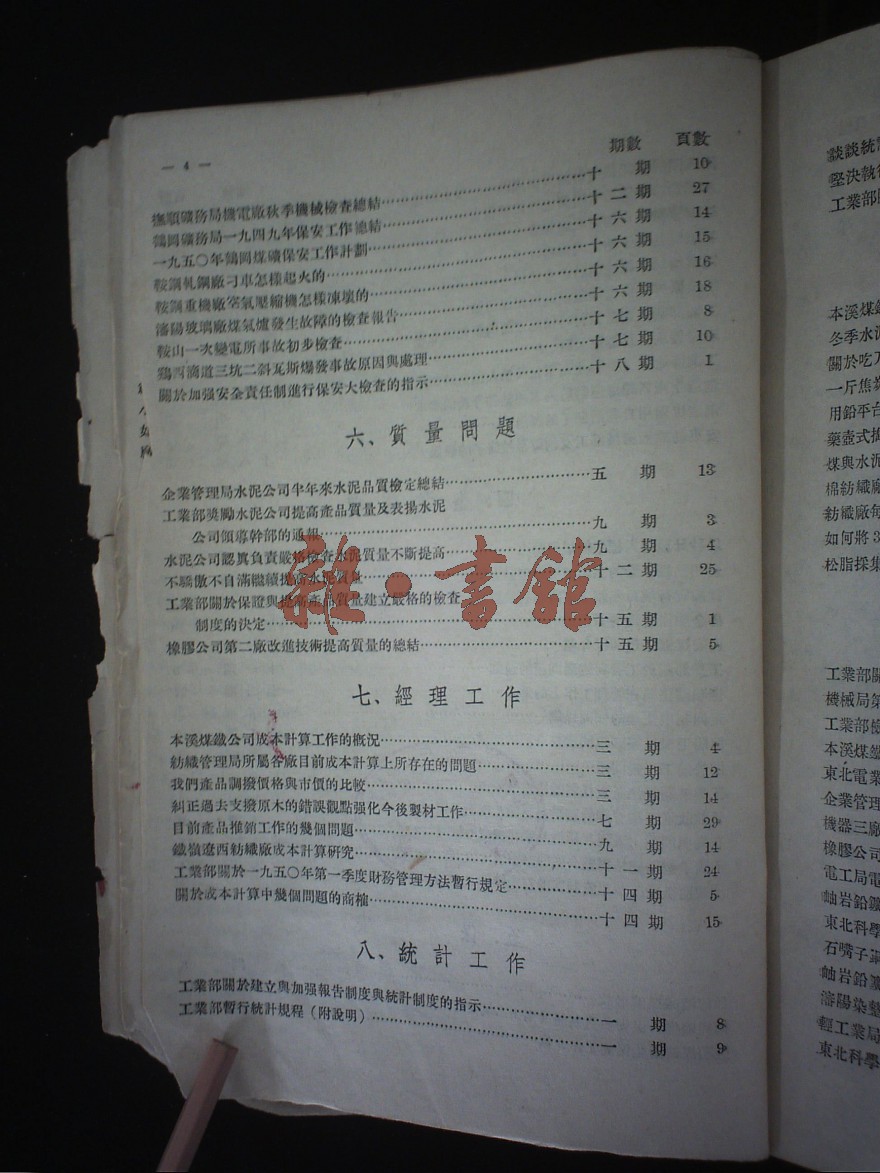 — 4 —
期數 頁數
撫順礦務局機電廠秋季機械檢查總結……十期 10
鶴岡礦務局一九四九年保安工作總結……十二期 27
一九五〇年鶴岡煤礦保安工作計劃……十六期 14
鞍鋼軋鋼廠刁車怎樣起火的……十六期 15
鞍鋼重機廠空氣壓縮機怎樣凍壞的……十六期 16
瀋陽玻璃廠煤氣爐發生故障的檢查報告……十六期 18
鞍山一次變電所事故初步檢查……十七期 8
鷄西滴道三坑二斜瓦斯爆發事故原因與處理……十七期 10
關於加强安全責任制進行保安大檢查的指示……十八期 1
六、質量問題
企業管理局水泥公司半年來水泥品質檢定總結……五期 13
工業部獎勵水泥公司提高產品質量及表揚水泥
公司領導幹部的通報……九期 3
水泥公司認眞負責嚴格檢查水泥質量不斷提高……九期 4
不驕傲不自滿繼續提高水泥質量……十二期 25
工業部關於保證與提高產品質量建立嚴格的檢查
制度的決定……十五期 1
橡膠公司第二廠改進技術提高質量的總結……十五期 5
雜·書館
七、經理工作
本溪煤鐵公司成本計算工作的槪況……三期 4
紡織管理局所屬各廠目前成本計算上所存在的問題……三期 12
我們產品調撥價格與市價的比較……三期 14
糾正過去支撥原木的錯誤觀點强化今後製材工作……七期 29
目前產品推銷工作的幾個問題……九期 14
鐵嶺遼西紡織廠成本計算硏究……十一期 24
工業部關於一九五〇年第一季度財務管理方法暫行規定……十四期 5
關於成本計算中幾個問題的商榷……十四期 15
八、統計工作
工業部關於建立與加强報告制度與統計制度的指示……一期 8
工業部暫行統計規程（附說明）……一期 9
談談統
堅決執行
工業部
本溪煤
冬季水
關於吃
一斤焦
用鉛平台
藥壺式
煤與水泥
棉紡織廠
紡織廠
如何將3
松脂採集
工業部
機械局第
工業部
本溪煤
東北電業
企業管理
機器三廠
橡膠公司
電工局電
岫岩鉛
東北科學
石嘴子
岫岩鉛
瀋陽染整
輕工業局
東北科學